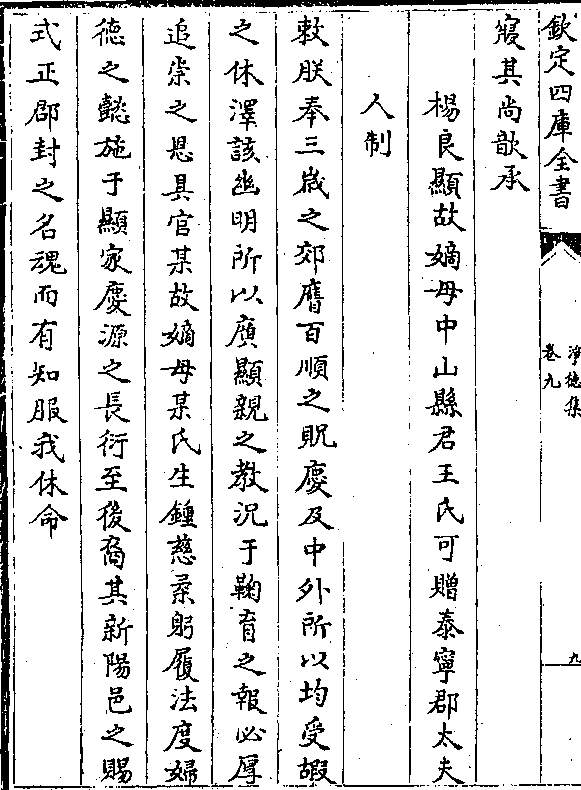 欽定四庫全書
淨德集
卷九
九
寢其尚歆承
楊良顯故嫡母中山縣君王氏可贈泰寧郡太夫
人制
敕朕奉三歲之郊膺百順之貺慶及中外所以均受嘏
之休澤該幽明所以廣顯親之教況于鞠育之報必厚
追崇之恩具官某故嫡母某氏生鍾慈柔躬履法度婦
德之懿施于顯家慶源之長衍至後裔其新陽邑之賜
式正郡封之名魂而有知服我休命